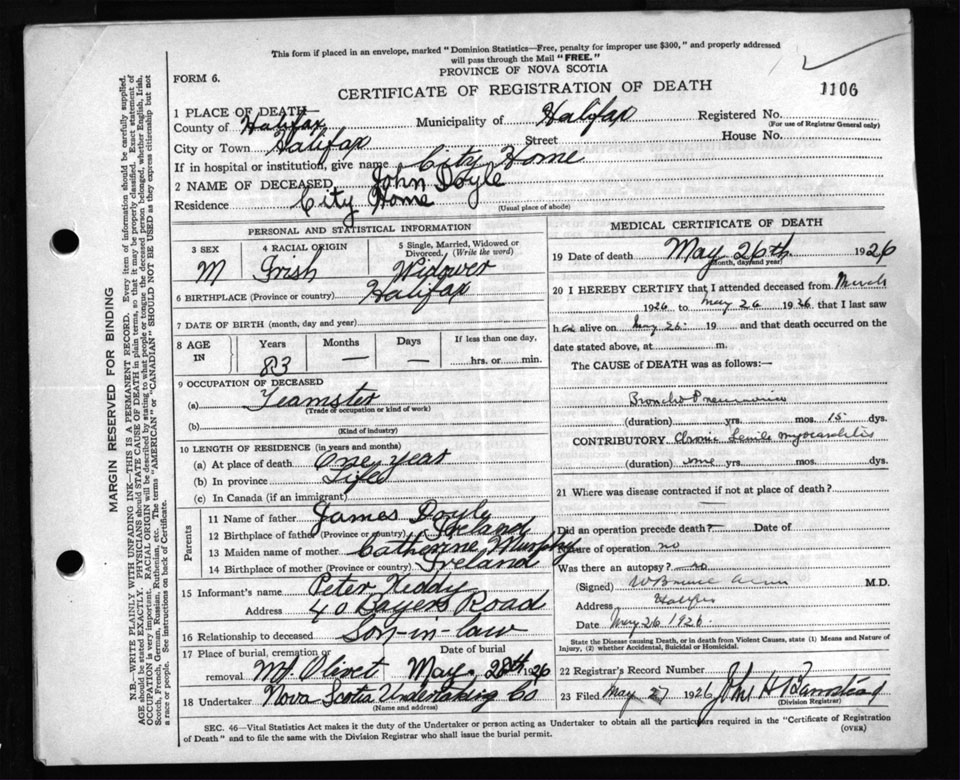 This form if placed in an envelope, marked "Dominion Statistics—Free, penalty for improper use $300," and properly addressed
will pass through the Mail "FREE."
PROVINCE OF NOVA SCOTIA
FORM 6.
CERTIFICATE OF REGISTRATION OF DEATH
1106
1 PLACE OF DEATH
County of Halifax Municipality of Halifax Registered No.
(For use of Registrar General only)
City or Town Halifax Street House No.
If in hospital or institution, give name City Home
2 NAME OF DECEASED John Doyle
Residence City Home
(Usual place of abode)
PERSONAL AND STATISTICAL INFORMATION
3 SEX 4 RACIAL ORIGIN 5 Single, Married, Widowed or Divorced. (Write the word)
M Irish Widower
6 BIRTHPLACE (Province or country) Halifax
7 DATE OF BIRTH (month, day and year)
8 AGE IN Years Months Days If less than one day,
83 — — hrs. or min.
9 OCCUPATION OF DECEASED
(a) Teamster
(Trade or occupation or kind of work)
(b)
(Kind of industry)
10 LENGTH OF RESIDENCE (in years and months)
(a) At place of death One year
(b) In province Life
(c) In Canada (if an immigrant)
Parents
11 Name of father James Doyle
12 Birthplace of father (Province or country) Ireland
13 Maiden name of mother Catherine Murphy
14 Birthplace of mother (Province or country) Ireland
15 Informant's name Peter Keddy
Address 40 Bayers Road
16 Relationship to deceased Son-in-law
17 Place of burial, cremation or removal Date of burial
Mt. Olivet May 28th 1926
18 Undertaker Nova Scotia Undertaking Co
(Name and address)
MEDICAL CERTIFICATE OF DEATH
19 Date of death May 26th 1926
(month, day and year)
20 I HEREBY CERTIFY that I attended deceased from March
1926 to May 26 1926 that I last saw
h alive on May 26 19 and that death occurred on the
date stated above, at m.
The CAUSE of DEATH was as follows:—
Broncho Pneumonia
(duration) yrs. mos. 15 dys.
CONTRIBUTORY Chronic Senile myocarditis
(duration) some yrs. mos. dys.
21 Where was disease contracted if not at place of death?
Did an operation precede death? — Date of
Nature of operation no
Was there an autopsy? no
(Signed) W Bruce M.D.
Address Halifax
Date May 26 1926.
State the Disease causing Death, or in death from Violent Causes, state (1) Means and Nature of
Injury, (2) whether Accidental, Suicidal or Homicidal.
22 Registrar's Record Number
23 Filed May 27 1926 John H Barnstead
(Division Registrar)
SEC. 46—Vital Statistics Act makes it the duty of the Undertaker or person acting as Undertaker to obtain all the particulars required in the "Certificate of Registration
of Death" and to file the same with the Division Registrar who shall issue the burial permit.
(OVER)
MARGIN RESERVED FOR BINDING
N.B.—WRITE PLAINLY WITH UNFADING INK—THIS IS A PERMANENT RECORD. Every item of information should be carefully supplied.
AGE should be stated EXACTLY. PHYSICIANS should STATE CAUSE OF DEATH in plain terms, so that it may be properly classified. Exact statement of
OCCUPATION is very important. RACIAL ORIGIN will be described by stating to what people or tongue the deceased person belonged, whether English, Irish,
Scotch, French, German, Russian, Ruthenian, etc. The terms "AMERICAN" or "CANADIAN" SHOULD NOT BE USED as they express citizenship but not
a race or people. See instructions on back of Certificate.